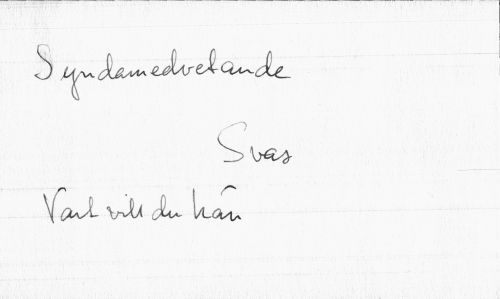 Syndamedvetande
Svas
Vart vill du hän